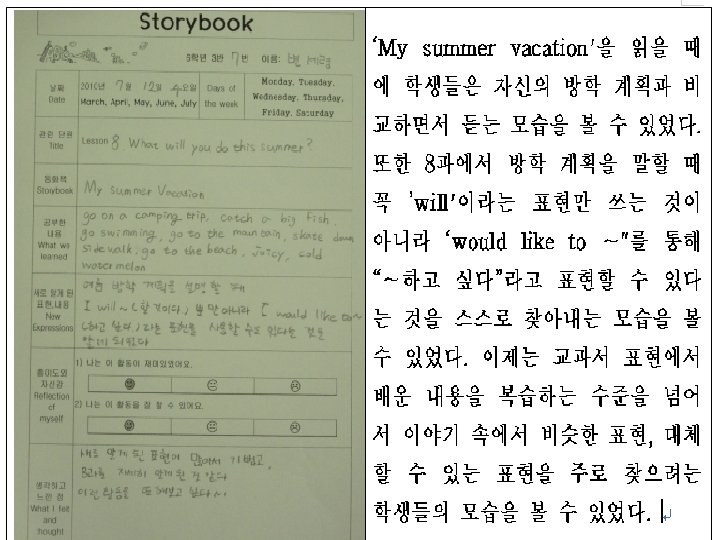 Storybook
5학년 3반 7번 이름:
날짜
Date
2016년 7월 12일 요일
March, April, May, June, July
Days of
the week
Monday, Tuesday,
Wednesday, Thursday,
Friday, Saturday
관련 단원
Title
Lesson 8. What will you do this summer?
동화책
Storybook
My summer Vacation
공부한
내용
What we
learned
go on a camping trip, catch a big fish.
go swimming, go to the mountain, skate down
sidewalk, go to the beach, juicy, cold
watermelon
새로 알게 된
표현,내용
New
Expressions
여름 방학 계획을 설명할 때
I will ~ (할 것이다) 뿐만 아니라 I would like to~
(하고 싶다)라는 표현을 사용할 수도 있다는 것을
알게 되었다
흥미도와
자신감
Reflection
of
myself
1) 나는 이 활동이 재미있었어요.
2) 나는 이 활동을 잘 할 수 있어요.
생각하고
느낀 점
What I felt
and
thought
새로 알게 된 표현이 많아서 기뻤고,
8과를 자세히 알게 된 것 같다
이런 활동을 또 해보고 싶다
‘My summer vacation'을 읽을 때
에 학생들은 자신의 방학 계획과 비
교하면서 듣는 모습을 볼 수 있었다.
또한 8과에서 방학 계획을 말할 때
꼭 'will'이라는 표현만 쓰는 것이
아니라 ‘would like to ~"를 통해
“~하고 싶다”라고 표현할 수 있다
는 것을 스스로 찾아내는 모습을 볼
수 있었다. 이제는 교과서 표현에서
배운 내용을 복습하는 수준을 넘어
서 이야기 속에서 비슷한 표현, 대체
할 수 있는 표현을 주로 찾으려는
학생들의 모습을 볼 수 있었다.